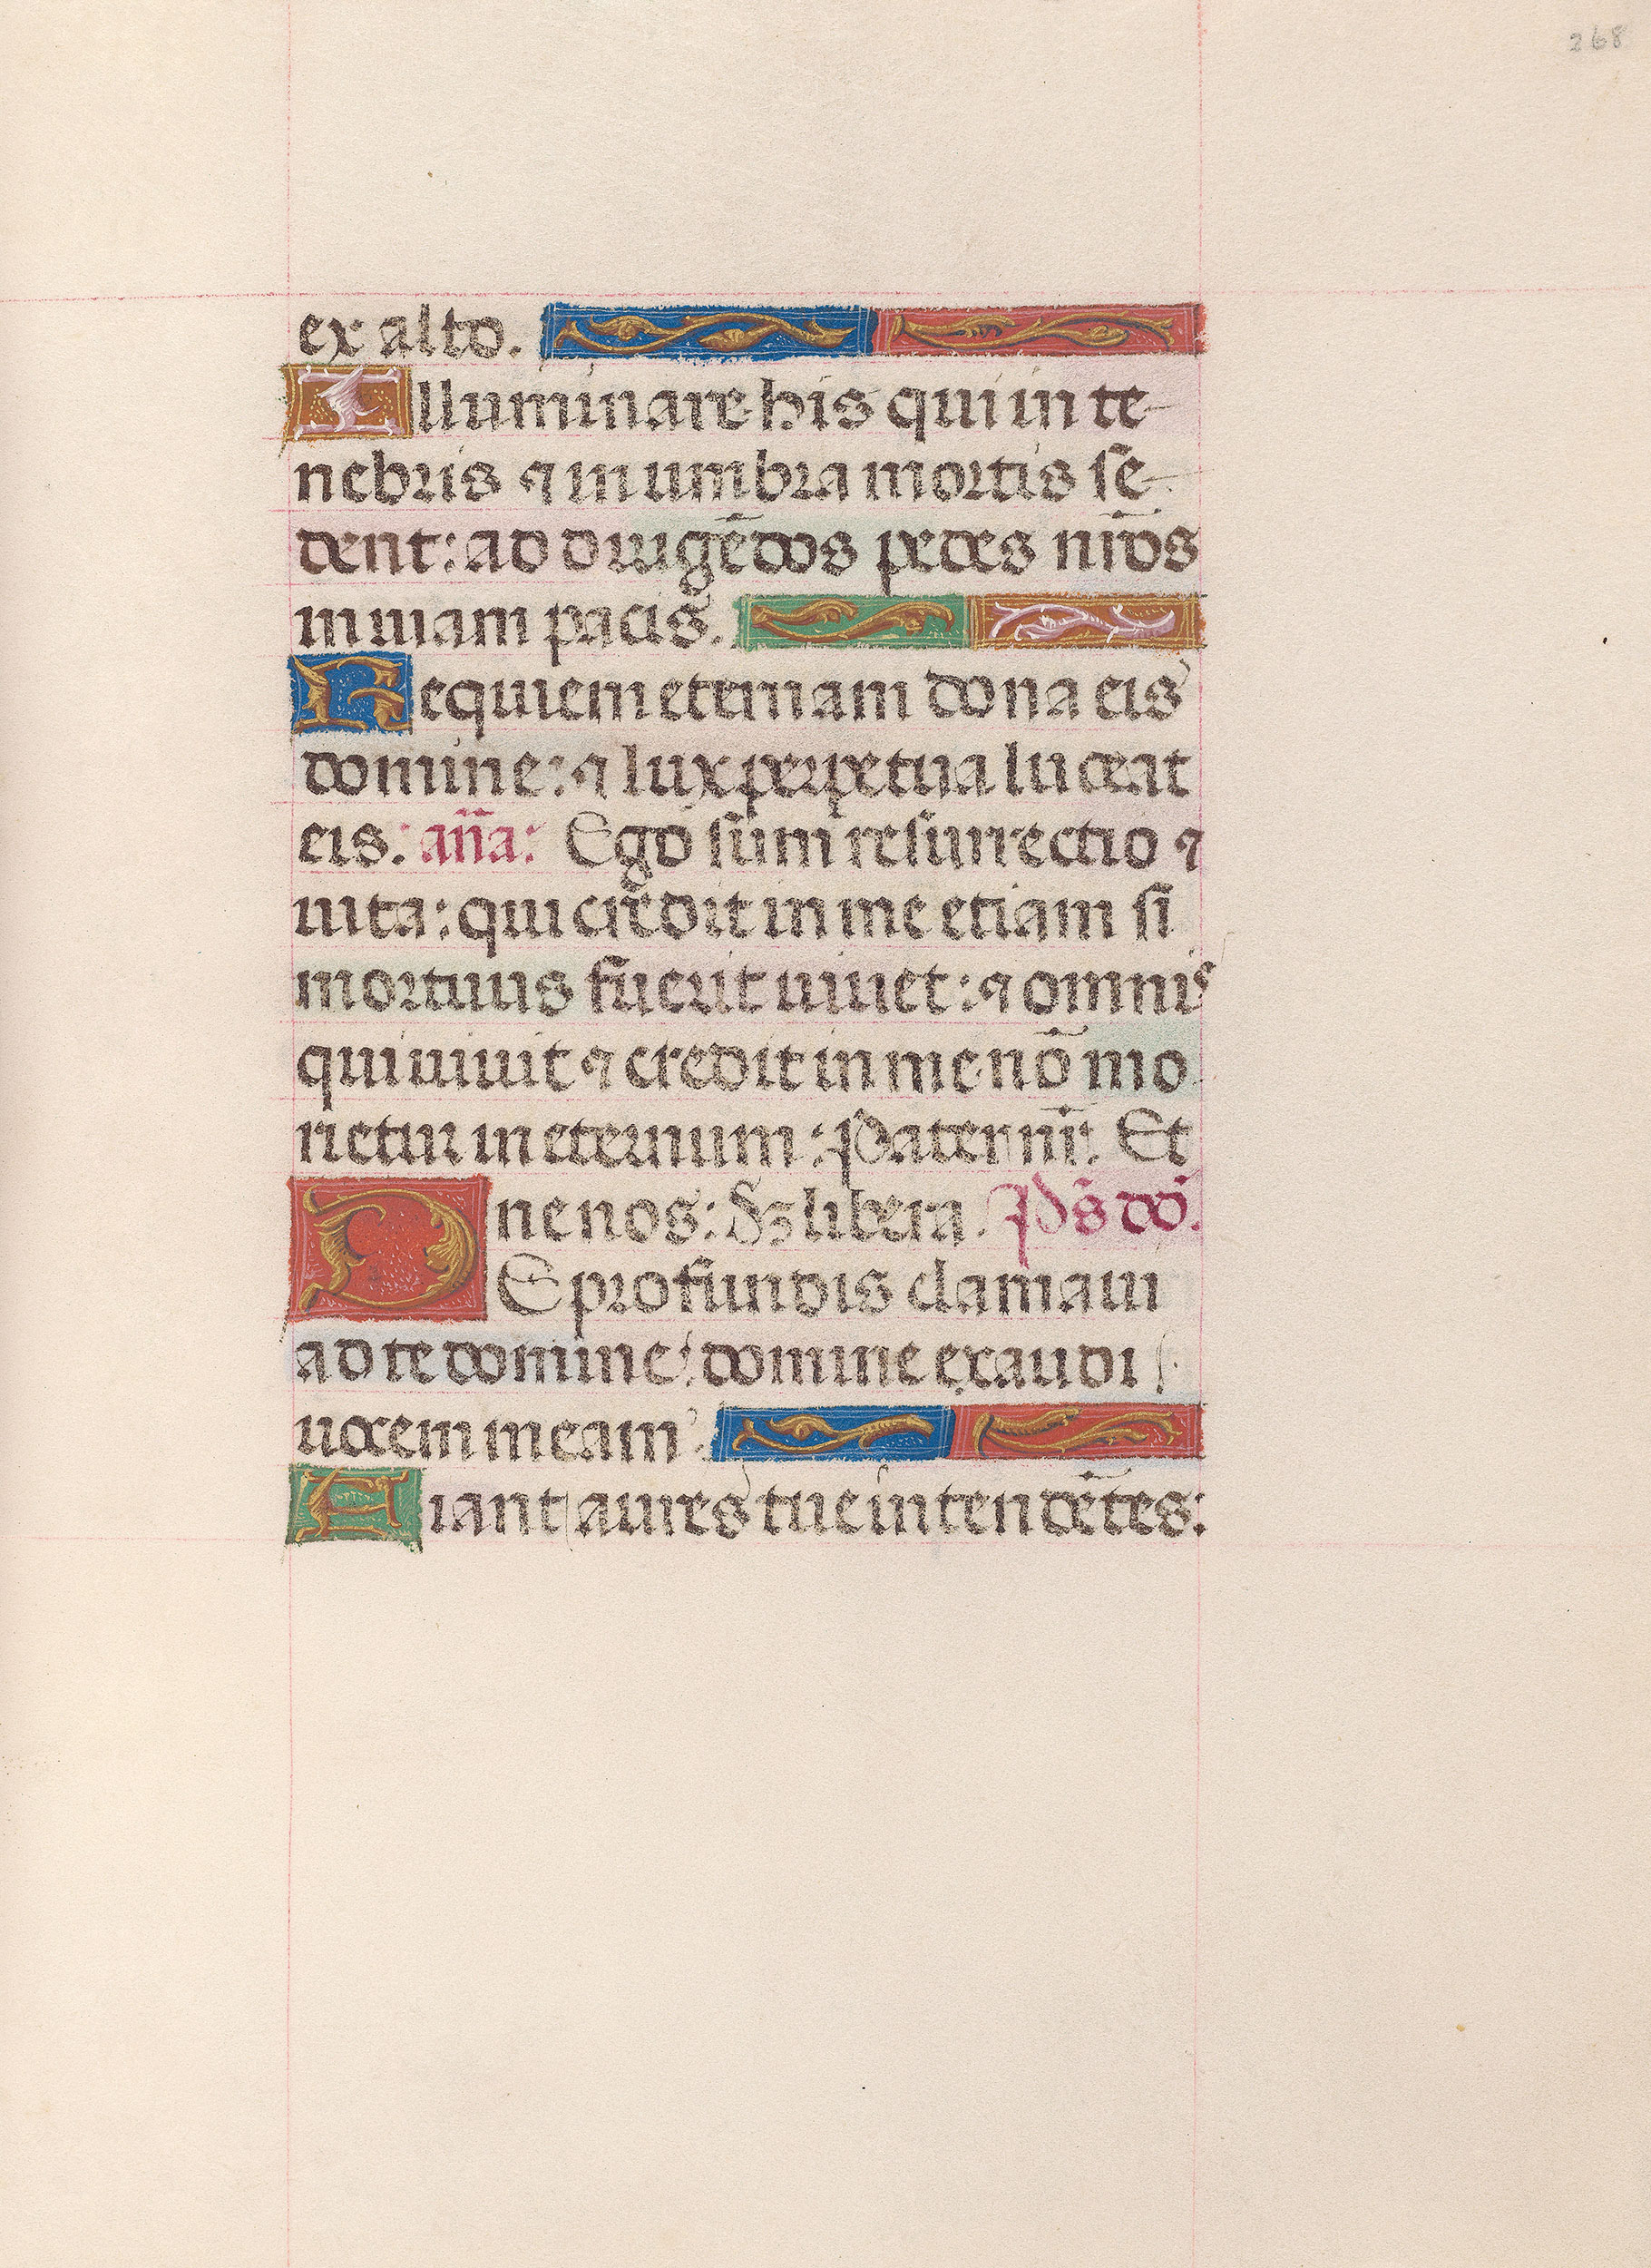 268
ex alto.
Illuminare his qui in te-
nebris ⁊ in umbra mortis se-
dent: ad dirigēdos pedes nr̄os
in uiam pacis.
Requiem eternam dona eis
domine: ⁊ lux perpetua luceat
eis. an̄a: Ego sum resurrectio ⁊
uita: qui credit in me etiam si
mortuus fuerit uiuet: ⁊ omnis
qui uiuit ⁊ credit in me nō mo
rietur in eternum: Pater nr̄. Et
ne nos: Sꝫ libera. Ps̄ dō.
DE profundis clamaui
ad te domine: domine exaudi
uocem meam.
Fiant aures tue intendētes: